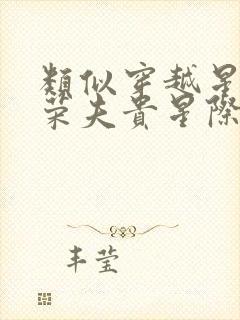 類似穿越星
荣夫貴星際
丰莹